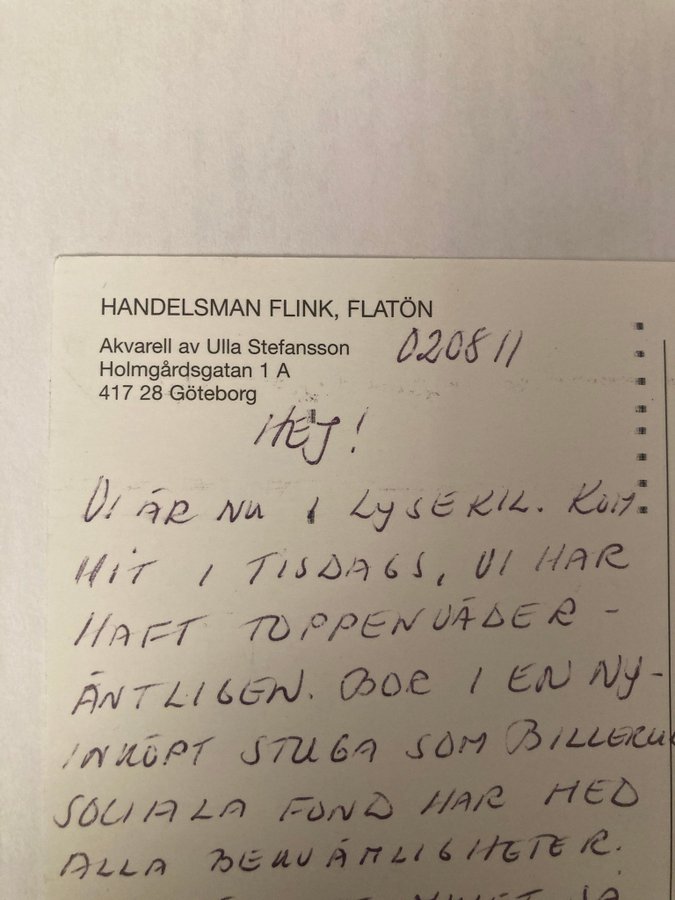 HANDELSMAN FLINK, FLATÖN
Akvarell av Ulla Stefansson
Holmgårdsgatan 1 A
417 28 Göteborg
020811
HEJ!
VI ÄR NU I LYSEKIL. KOM
HIT I TISDAGS, VI HAR
HAFT TOPPENVÄDER -
ÄNTLIGEN. BOR I EN NY-
INKÖPT STUGA SOM
SOCIALA FOND HAR MED
ALLA BEKVÄMLIGHETER.